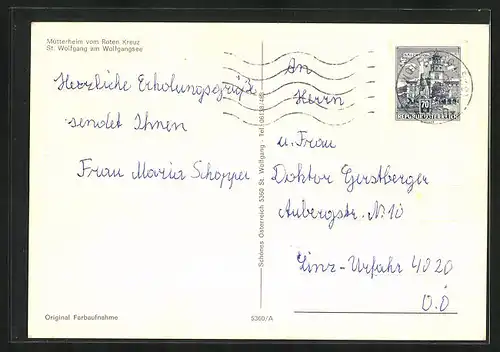 Mütterheim vom Roten Kreuz
St. Wolfgang am Wolfgangsee
Herzliche Erholungsgrüße
sendet Ihnen
Frau Maria Schopper
Original Farbaufnahme
Schönes Österreich 5360 St. Wolfgang - Tel.
5360/A
70
REPUBLIK ÖSTERREICH
An
Herrn
u. Frau
Doktor Gerstberger
Aubergstr. N: 10
Linz-Urfahr 4020
O.Ö